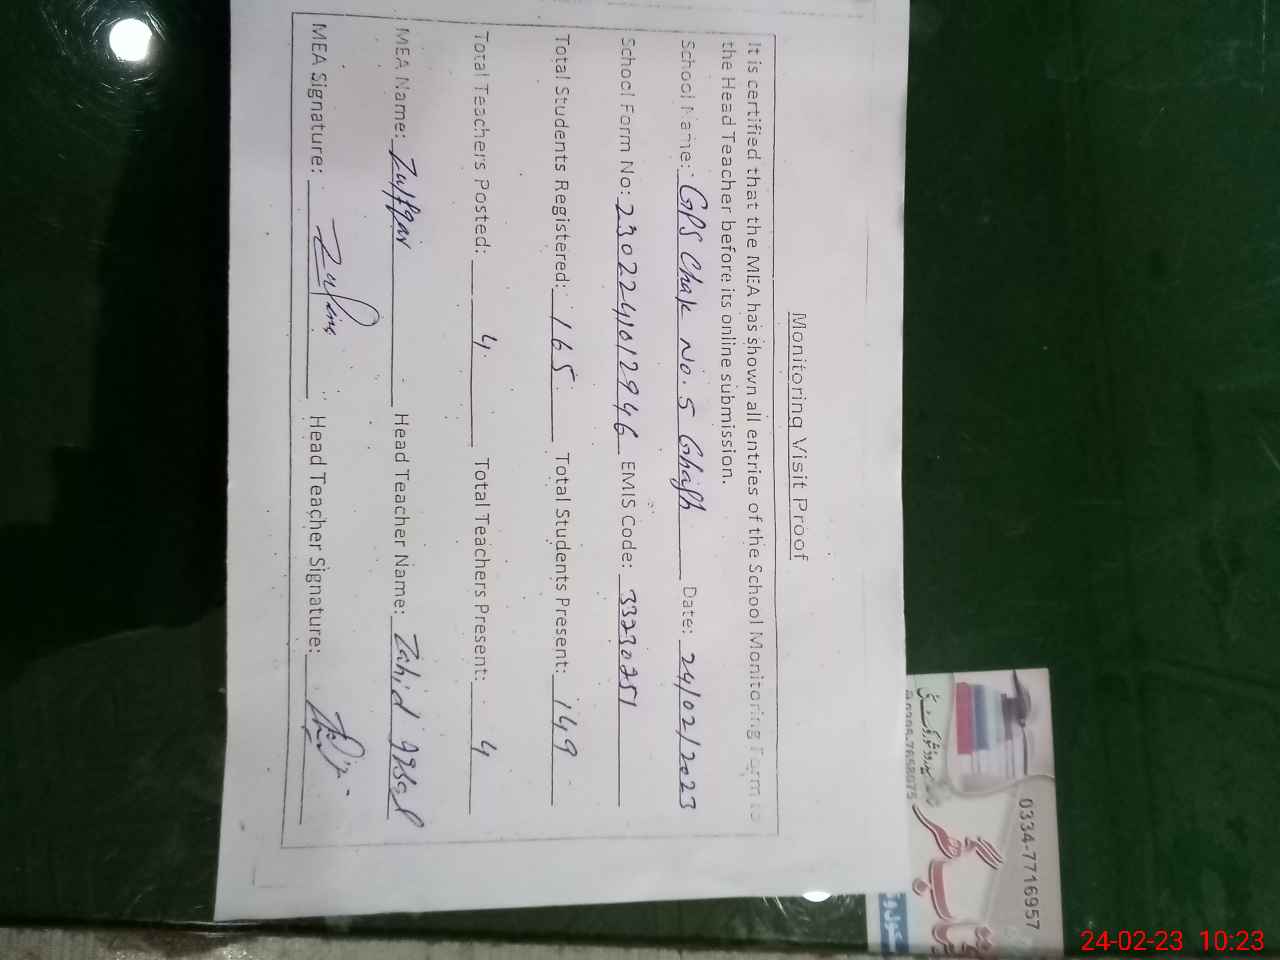 Monitoring Visit Proof
It is certified that the MEA has shown all entries of the School Monitoring Form to
the Head Teacher before its online submission.
School Name: GPS Chak No. 5 Ghagh Date: 24/02/2023
School Form No: 2302241012946 EMIS Code: 33230251
Total Students Registered: 165 Total Students Present: 149
Total Teachers Posted: 4 Total Teachers Present: 4
MEA Name: Zulfqar Head Teacher Name: Zahid iqbal
MEA Signature: Head Teacher Signature:
0334-7716957
24-02-23 10:23